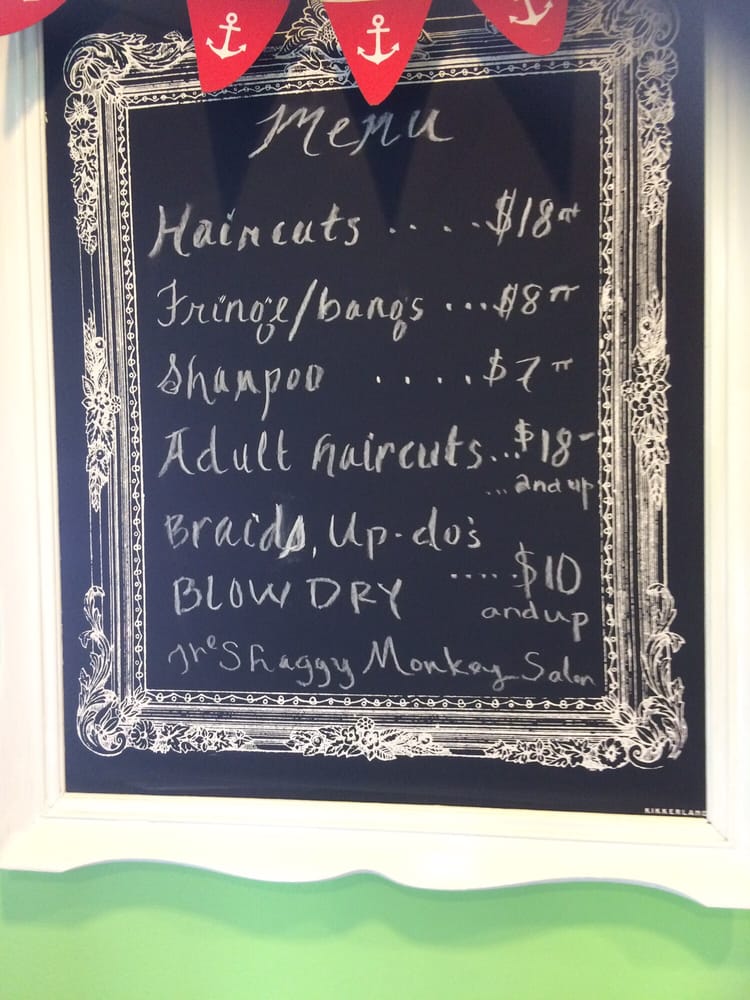 Menu
Haircuts ....$18
Fringe/bangs ...$8
Shampoo ....$7
Adult haircuts...$18-
...and up
Braids, Up-do's
BLOW DRY .....$10
and up
The Shaggy Monkey Salon
KIKKERLAND